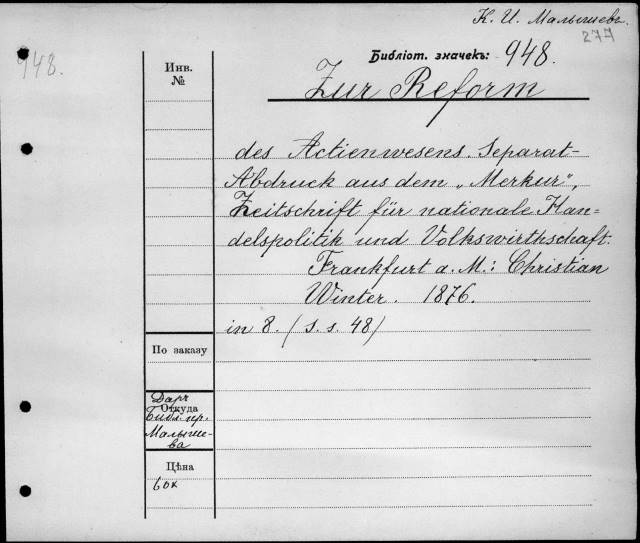 К. И. Малышевъ
277
948.
Инв.
№
Библіот. значекъ: 948.
Zur Reform
des Actienwesens. Separat-
Abdruck aus dem „Merkur",
Zeitschrift für nationale Han=
delspolitik und Volkswirthschaft.
Frankfurt a. M.: Christian
Winter. 1876.
in 8. (s. s. 48)
По заказу
Даръ
Откуда
Библ. пр.
Малыше-
ва
Цѣна
60к